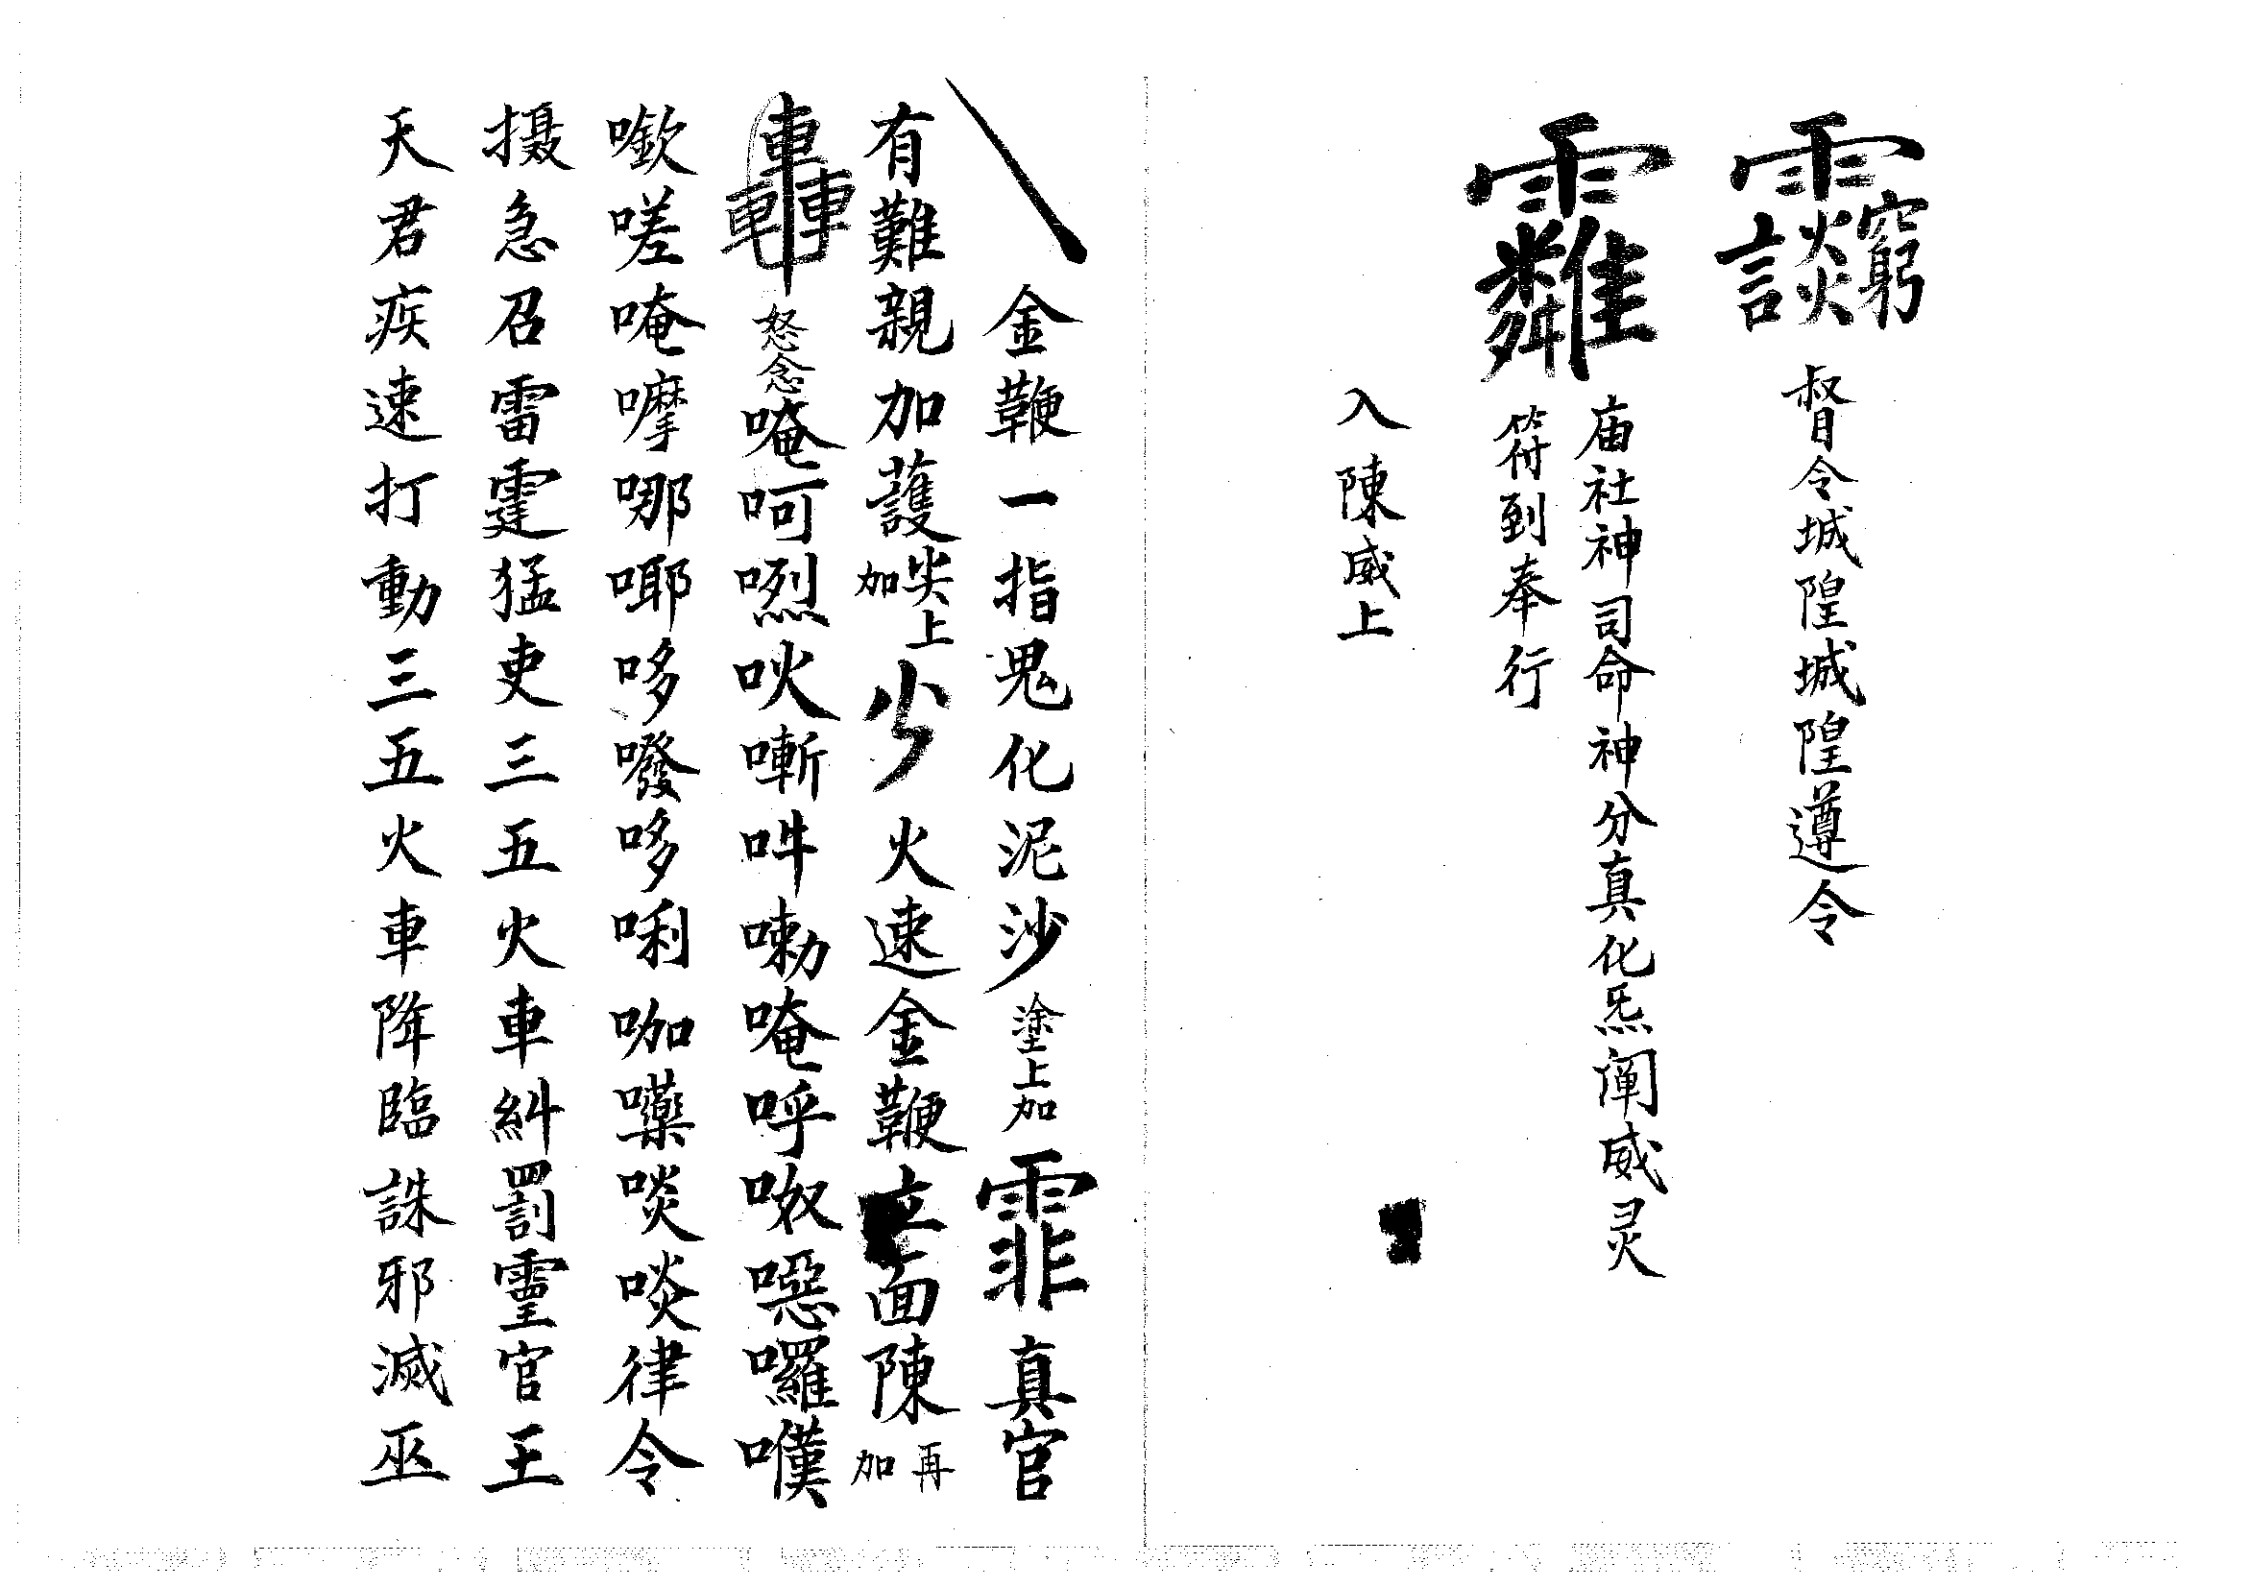 督令城隍城隍遵令
庙社神司命神分真化炁阐威灵
符到奉行
入陳威上
金鞭一指鬼化泥沙塗上加霏真官
有難親加護尖上加火速金鞭面陳再加
轟怒念唵呵㗩吙嘶吽嘞唵呼呶噁囉嘆
嗟唵嚒哪哪哆㗶哆唎咖㘇啖啖律令
摄急召雷霆猛吏三五火車糾罰霊官王
天君疾速打動三五火車降臨誅邪滅巫